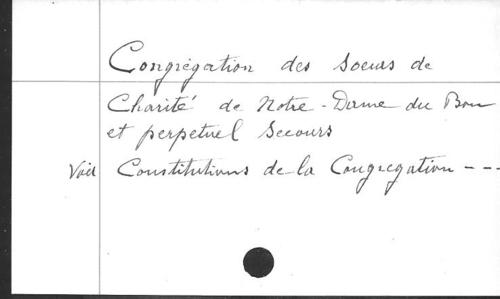 Congrégation des Soeurs de
Charité de Notre-Dame du Bon
et perpetuel Secours
Voir Constitutions de la Congregation ---